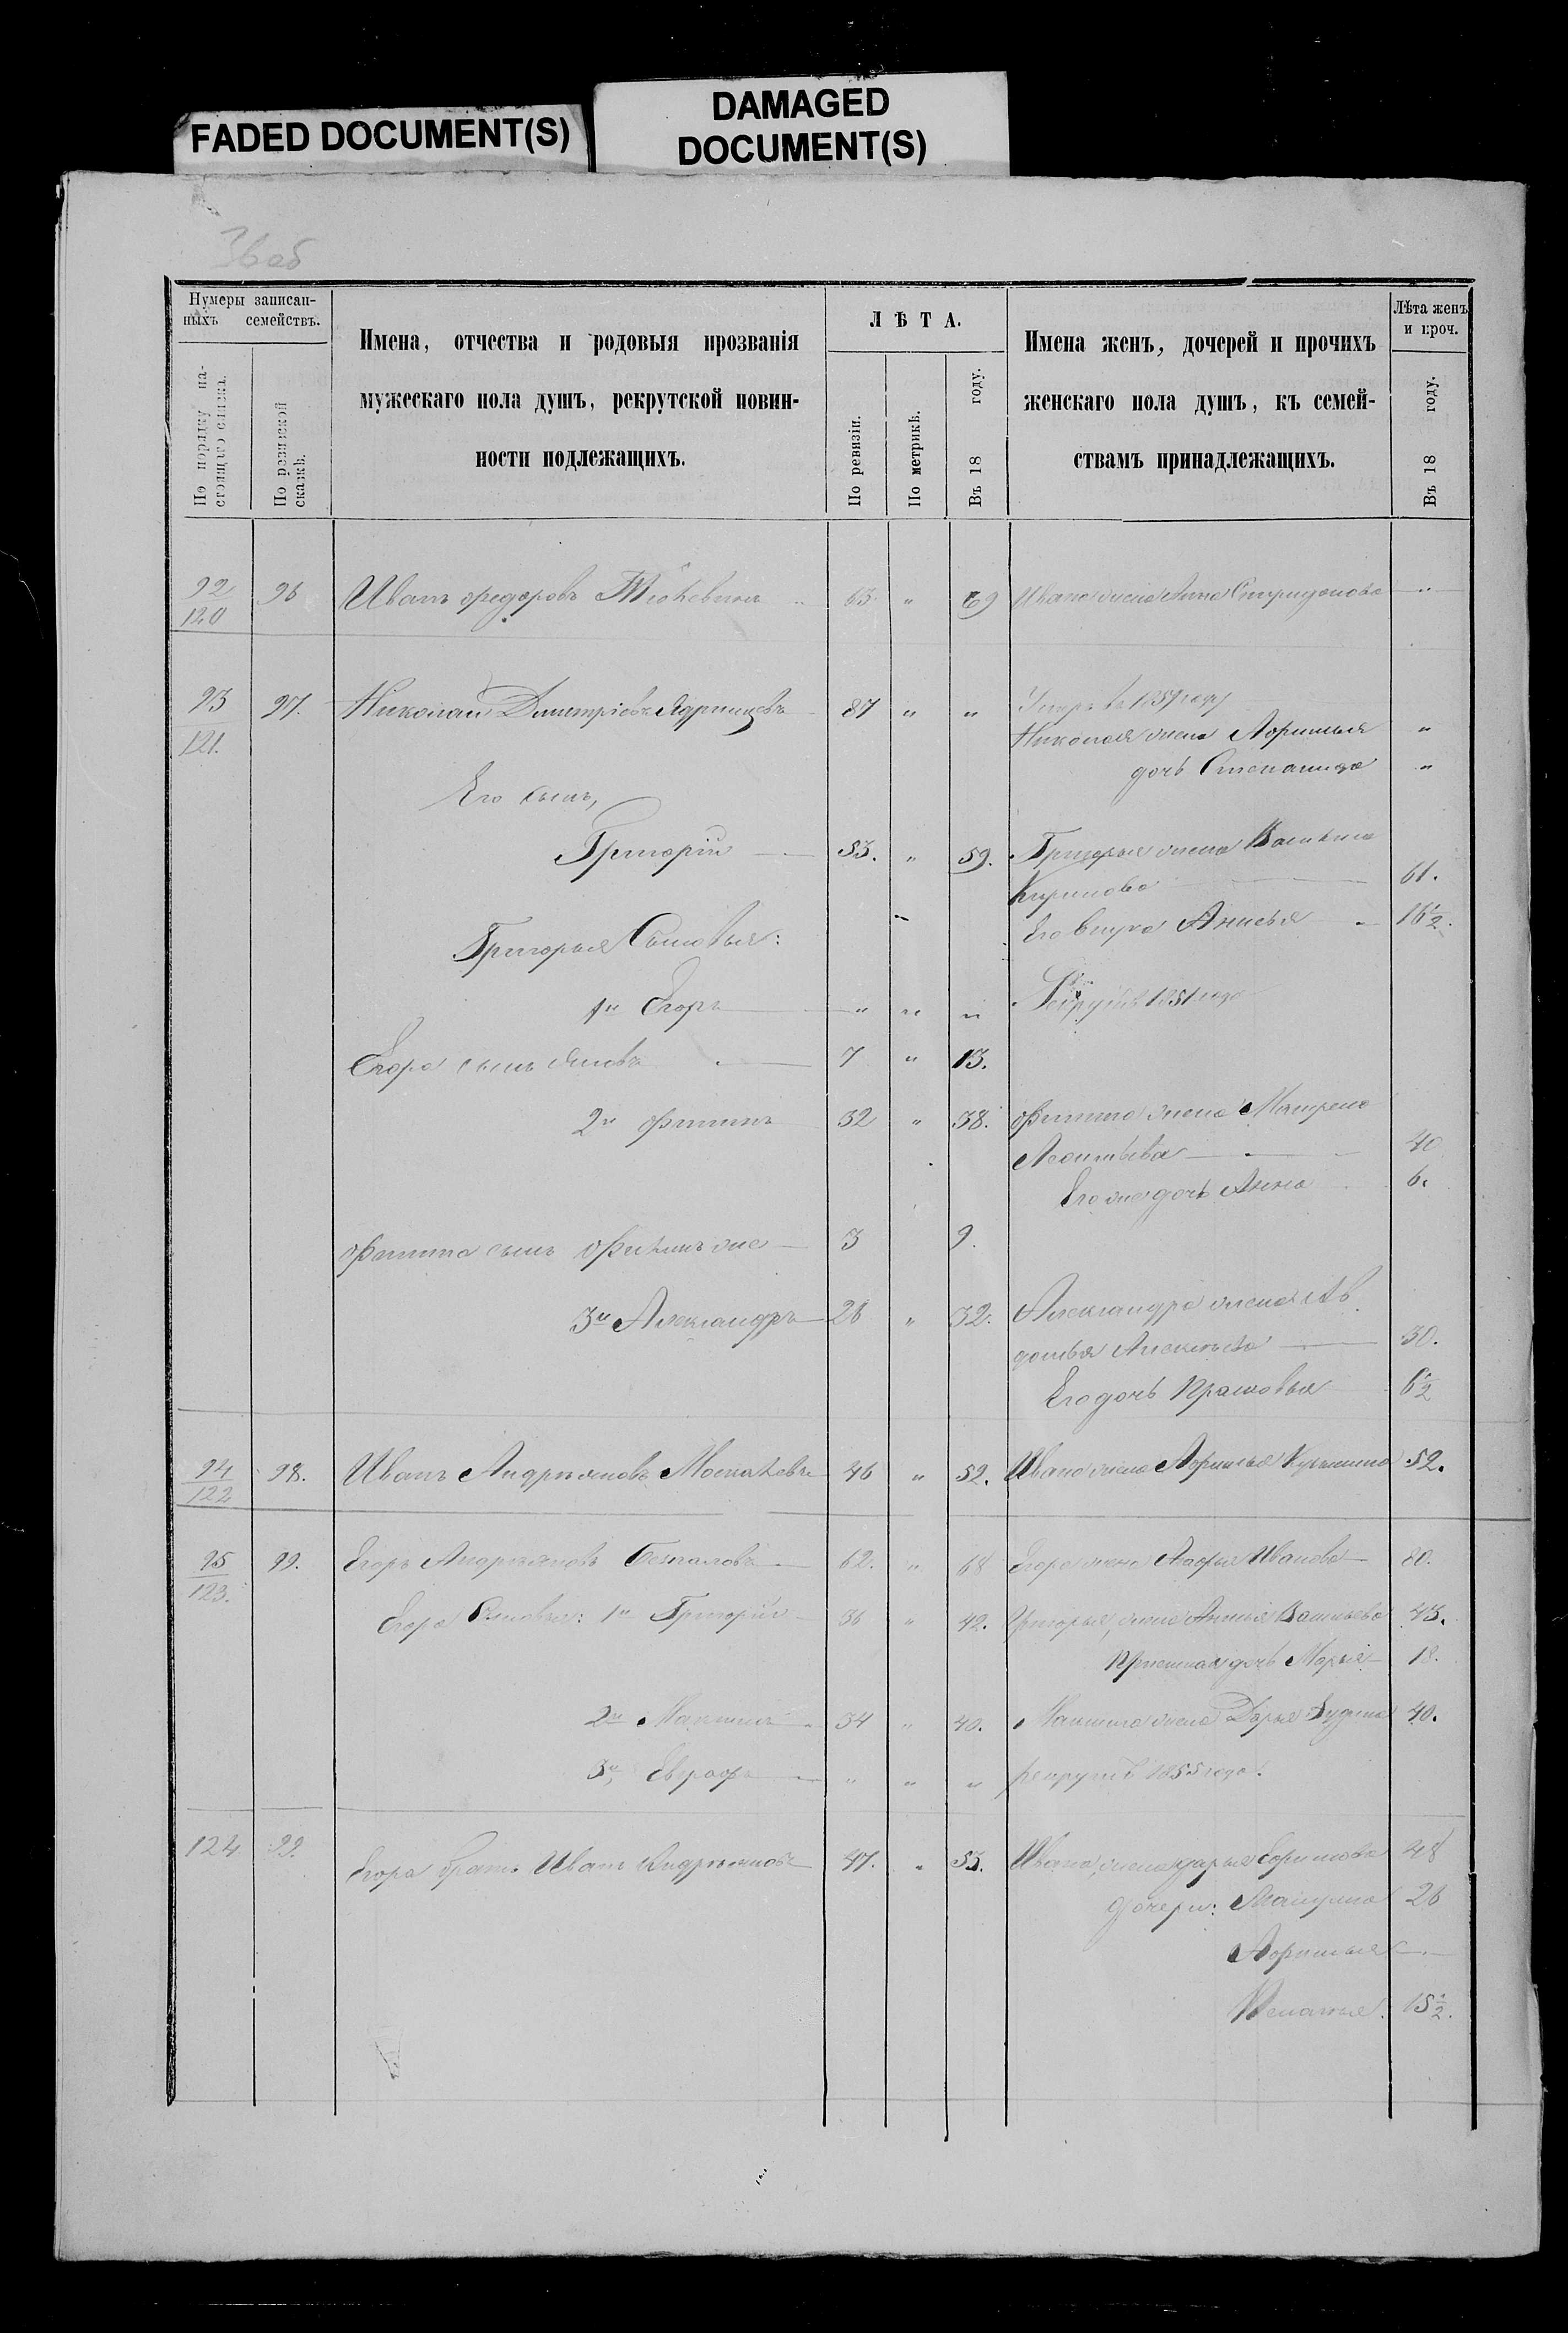 FADED DOCUMENT(S)
DAMAGED
DOCUMENT(S)
36 об
Нумеры записан-
ныхъ семействъ.
По порядку на-
стоящаго списка.
По ревизской
сказкѣ.
Имена, отчества и родовыя прозванія
мужескаго пола душъ, рекрутской повин-
ности подлежащихъ.
ЛѢТА.
По ревизіи.
По метрикѣ.
Въ 18 году.
Имена женъ, дочерей и прочихъ
женскаго пола душъ, къ семей-
ствамъ принадлежащихъ.
Лѣта женъ
и проч.
Въ 18 году.
92 96 Иванъ Федоровъ 63 " 69 Ивана жена Анна Спиридонова "
120
93 97. Николай Дмитріевъ 87 " " Умеръ въ 1859 году
121. Николая жена Афимья "
дочь Степанида "
Его сынъ,
Григорій 53. " 59. Григорья жена
Кирилова 61.
Его внука Анисья 16½.
Григорья Сыновья:
1й Егоръ " " " Рекрутъ 1851 года
Егора сынъ 7 " 13.
2й Филипъ 32 " 38. Филипа жена Матрена
Леонтьева 40
Его же дочь Анна 6.
Филипа сынъ Филипъ же 3 9.
3й Александръ 26 " 32. Александра жена Ав
дотья Алексѣева 30.
Его дочь Прасковья 6½
94 98. Иванъ Андреяновъ 46 " 52. Ивана жена Афимья Кузмина 52.
122
95 99. Егоръ Андреяновъ Безпаловъ 62. " 68 Егора жена Агафья Иванова 80.
123.
Егора Сыновья: 1й Григорій 36 " 42. Григорья, жена Анисья Васильева 43.
Пріемная дочь Марья 18.
2й Максимъ 34 " 40. Максима жена Дарья 40.
3й, Евграфъ " " " рекрутъ 1855 года.
124 99. Егора братъ Иванъ Андреяновъ 47. " 53. Ивана, жена Дарья 48
Дочери: 26
Афимья
Пелагея. 15½.